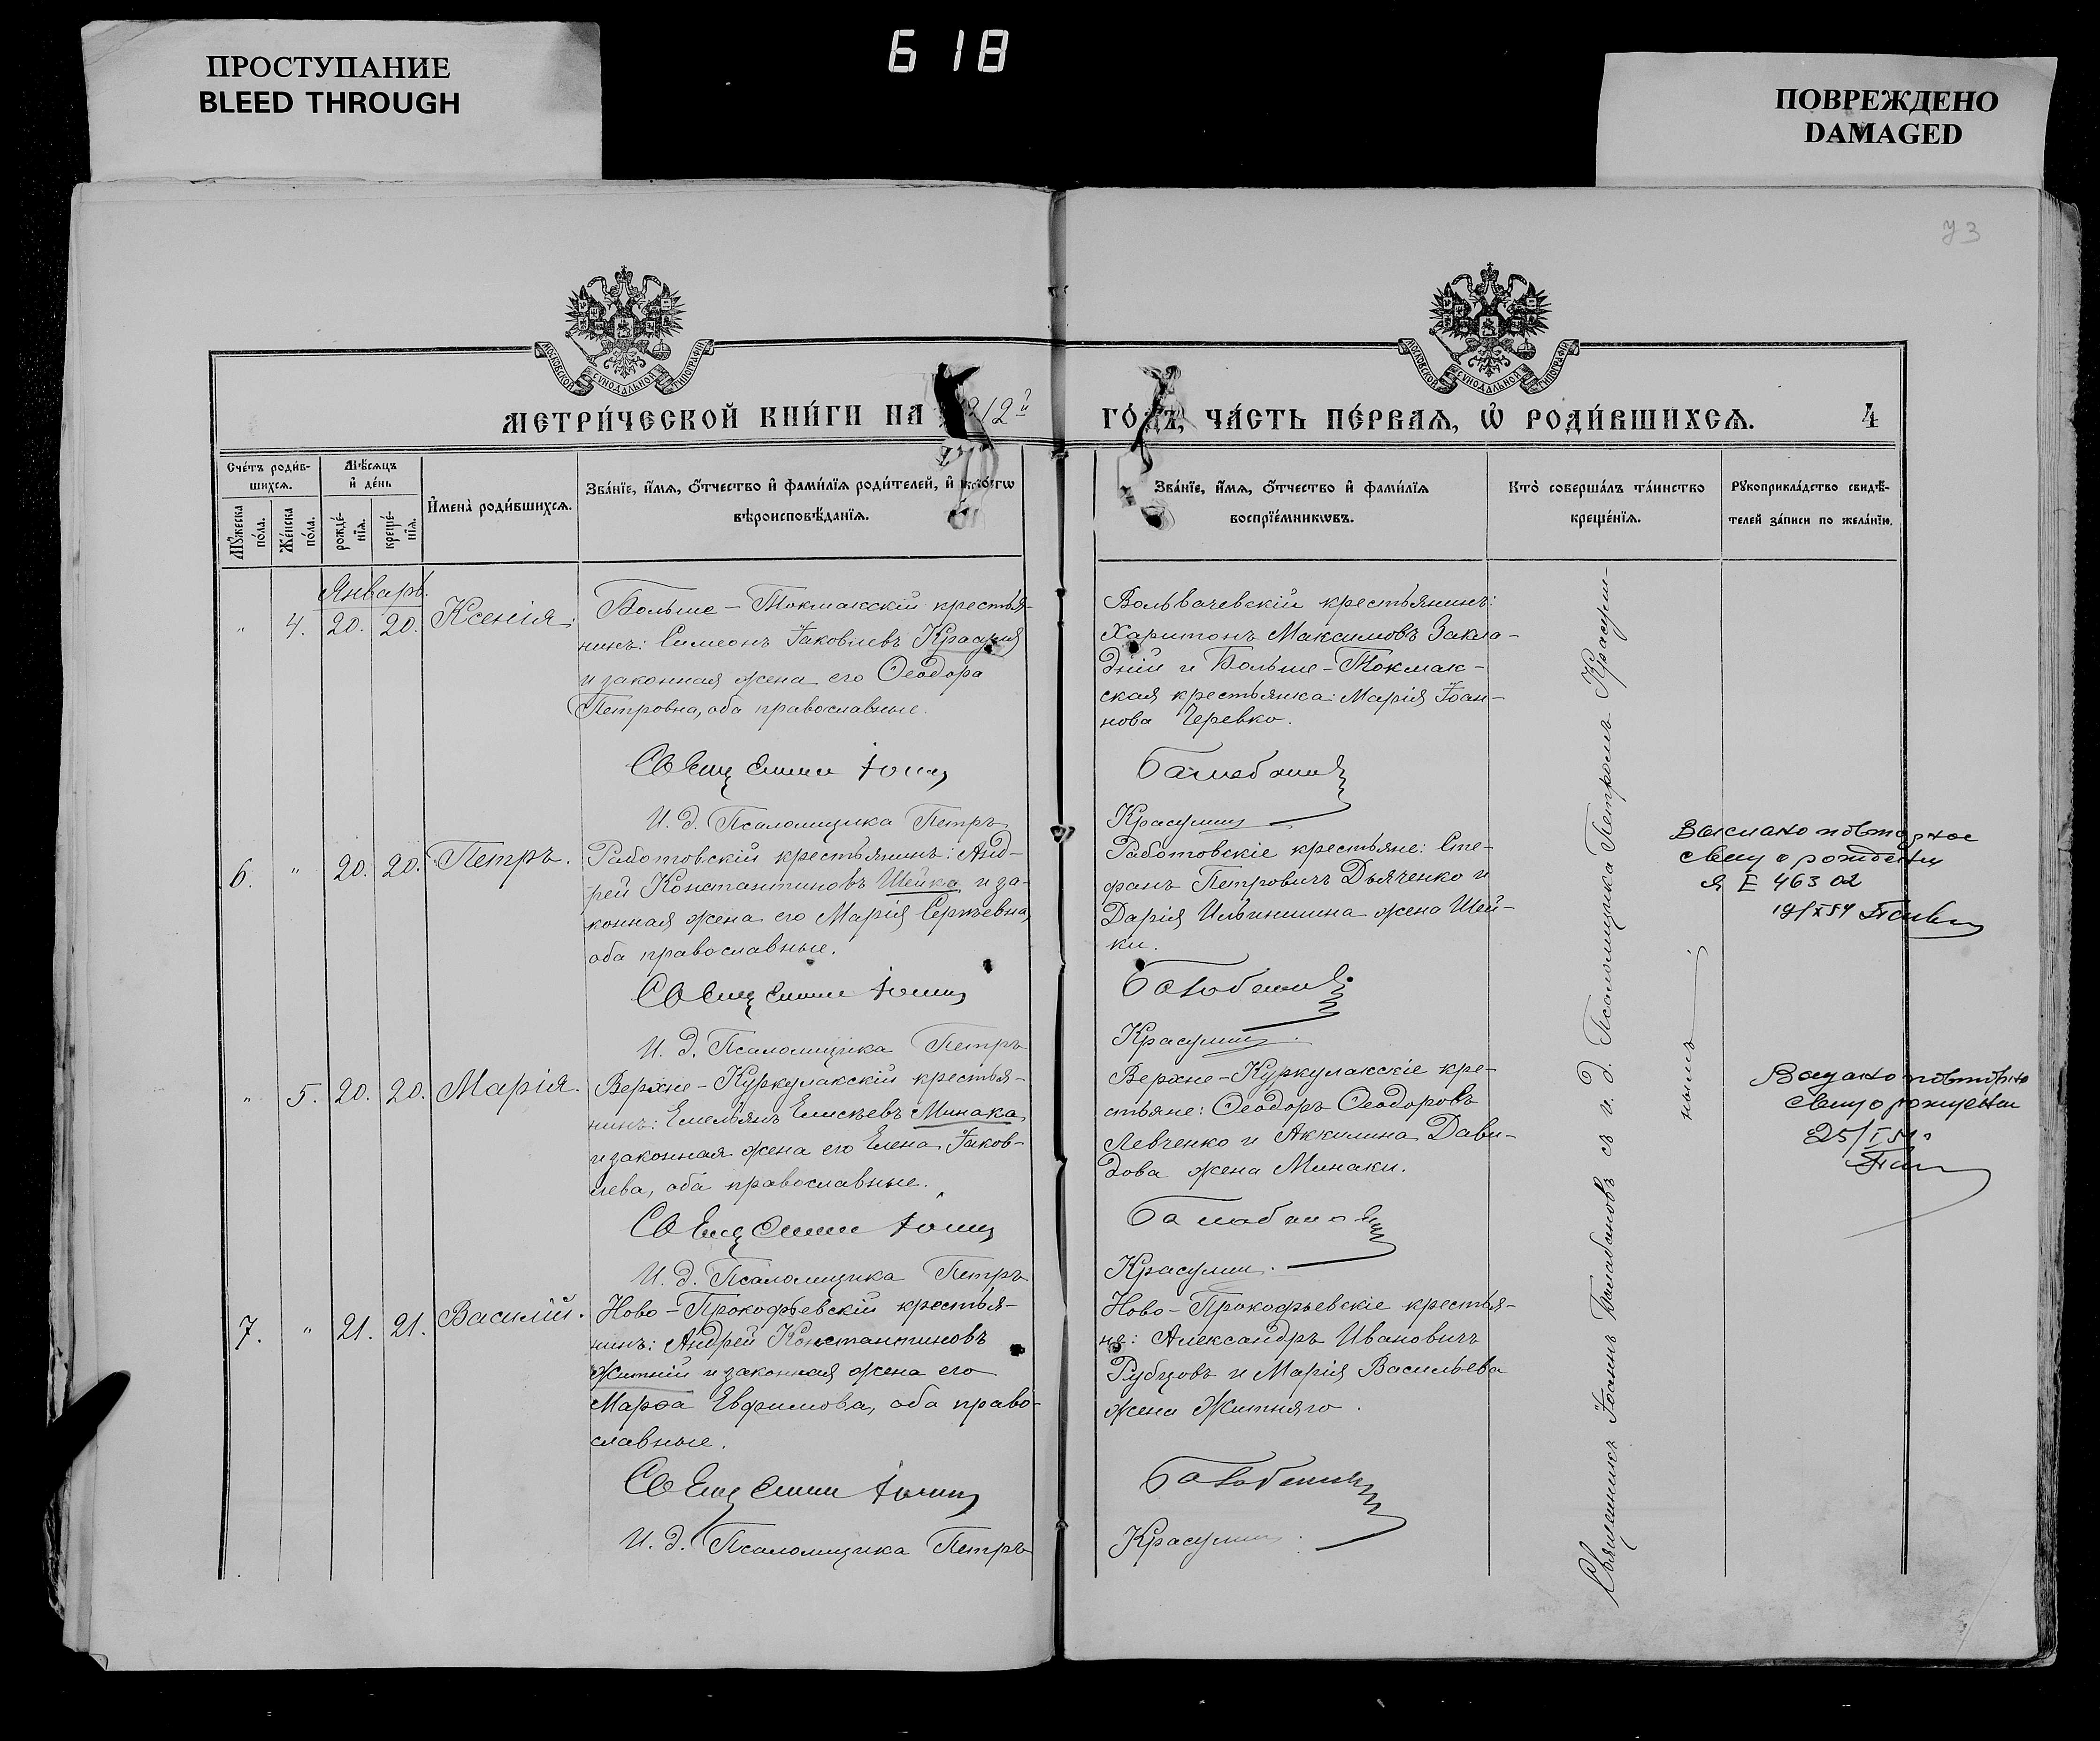 ПРОСТУПАНИЕ
BLEED THROUGH
618
ПОВРЕЖДЕНО
DAMAGED
73
МОСКОВСКОЙ СѴНОДАЛЬНОЙ ТИПОГРАФІИ
МОСКОВСКОЙ СѴНОДАЛЬНОЙ ТИПОГРАФІИ
МЕТРИ́ЧЕСКОЙ КНИ́ГИ НА 12й
ГО́ДЪ, ЧА́СТЬ ПЕ́РВАѦ, Ѡ҆ РОДИ́ВШИХСѦ. 4
Сче́тъ роди́вшихсѧ.
Мꙋ́жеска по́ла.
Же́нска по́ла.
Мѣ́сѧцъ и҆ де́нь
рожде́нїѧ.
креще́нїѧ.
И҆мена̀ роди́вшихсѧ.
Зва́нїе, и҆́мѧ, ѻ҆́тчество и҆ фами́лїѧ роди́телей, и҆ како́гѡ
вѣроисповѣ́данїѧ.
Зва́нїе, и҆́мѧ, ѻ҆́тчество и҆ фами́лїѧ
воспрїе́мникѡвъ.
Кто̀ соверша́лъ та́инство
креще́нїѧ.
Рꙋкоприкла́дство свидѣ́-
телей за́писи по жела́нїю.
Январь.
" 4. 20. 20. Ксенія.
Больше-Токмакскій крестья-
нинъ: Симеонъ Іаковлевъ
и законная жена его Ѳеодора
Петровна, оба православные.
Священникъ Іоаннъ
И. д. Псаломщика Петръ
Вольвачевскій крестьянинъ:
Харитонъ Максимовъ Закла-
дній и Больше-Токмак-
ская крестьянка: Марія Іоан-
нова Черевко.
Балабановъ
Красулинъ
6. " 20. 20. Петръ.
Работовскій крестьянинъ: Анд-
рей Константиновъ Шейка и за-
конная жена его Марія Сергѣевна,
оба православные.
Священникъ Іоаннъ
И. д. Псаломщика Петръ
Работовскіе крестьяне: Сте-
фанъ Петровичъ Дьяченко и
Дарія Ильинишна жена Шей-
ки.
Балабановъ
Красулинъ.
Выслано повторное
свид о рождении
Я Е 46302
" 5. 20. 20. Марія.
Верхне-Куркулакскій крестья-
нинъ: Емельянъ Елисѣевъ Минака
и законная жена его Елена Іаков-
лева, оба православные.
Священникъ Іоаннъ
И. д. Псаломщика Петръ
Верхне-Куркулакскіе кре-
стьяне: Ѳеодоръ Ѳеодоровъ
Левченко и Аккилина Дави-
дова жена Минаки.
Балабановъ
Красулин.
Выдано повторно
свид о рождении
25/I
7. " 21. 21. Василій.
Ново-Прокофьевскій крестья-
нинъ: Андрей Константиновъ
Житній и законная жена его
Марѳа Евфимова, оба право-
славные.
Священникъ Іоаннъ
И. д. Псаломщика Петръ
Ново-Прокофьевскіе крестья-
не: Александръ Ивановичъ
Рубцовъ и Марія Васильева
жена Житняго.
Балабановъ
Красулин.
Священникъ Іоаннъ Балабановъ съ и. д. Псаломщика Петромъ Красули-
нымъ.